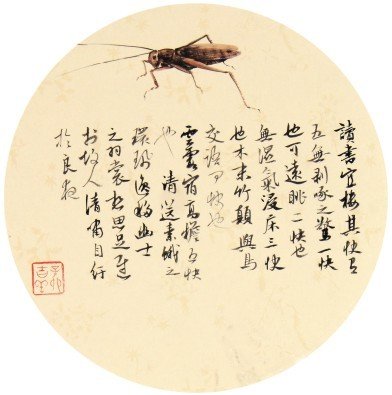 讀書宜樓其快有
五無剝啄之驚一快
也可遠眺二快也
無濕氣浸床三快
也木末竹顛與鳥
交語四快也
雲霞宿高檐五快
也清送素蛾之
環珮逸移幽士
之羽裳想思足
於故人清嘯自紆
於良夜